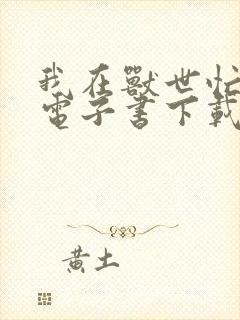 我在獸世忙
電子書下載
黃土